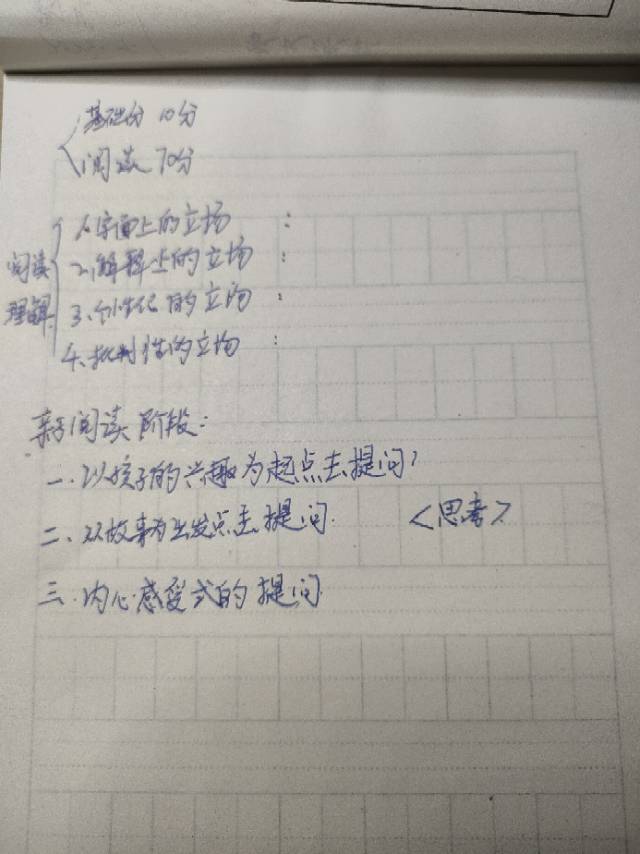 基础分 10分
阅读 70分
阅读理解
1、字面上的立场:
2、解释上的立场:
3、个性化的立场:
4、批判性的立场:
亲子阅读阶段:
一、以孩子的兴趣为起点去提问?
二、以故事为出发点去提问. <思考>
三、内心感受式的提问